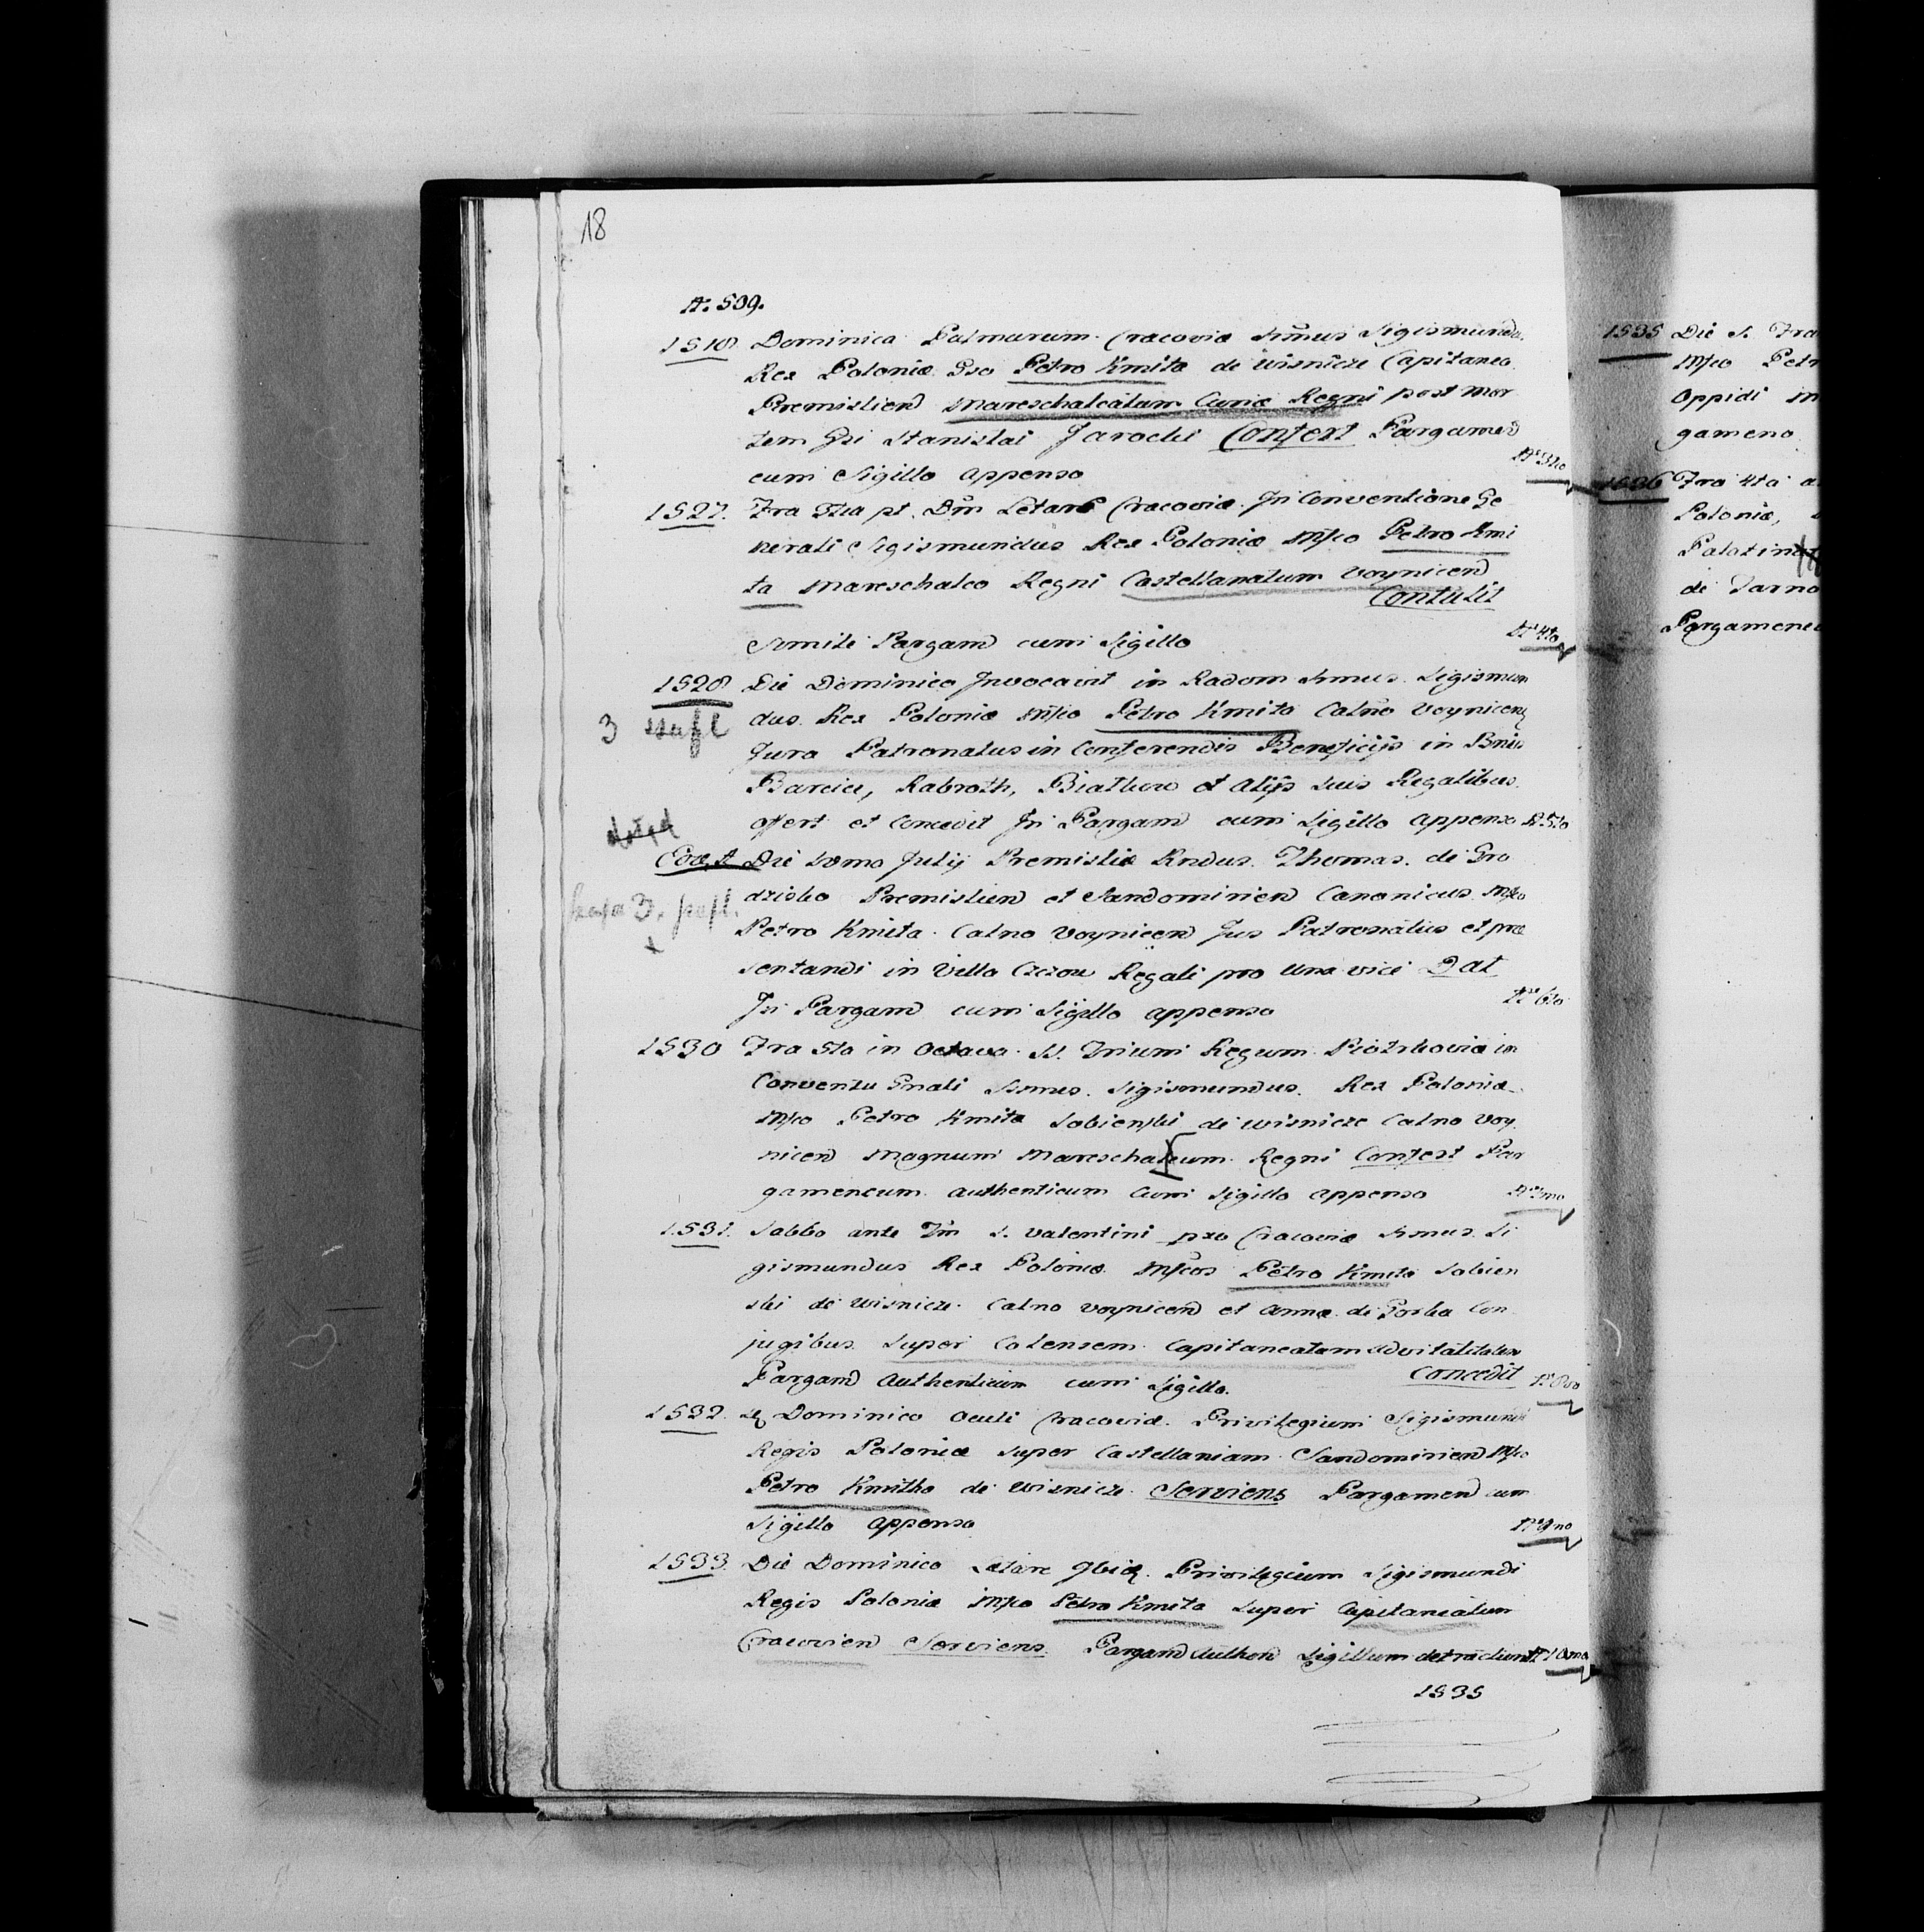 18
A. 509.
1518. Dominica Palmarum Cracoviæ Smus Sigismundus
Rex Poloniæ Gso Petro Kmitæ de Wisnicze Capitaneo
Premislien Mareschalcatum Curiæ Regni post mor
tem Gsi Stanislai Jarocki Confert Pargamen
cum Sigillo appenso Nº 3tio
1527. Fra 3tia pt. Dm Letare Cracoviæ. In Conventione Ge
nerali Sigismundus Rex Poloniæ Mfco Petro Kmi
ta Mareschalco Regni Castellanatum Voynicen
Contulit
Simile Pargam cum Sigillo Nº 4to
1528 Die Dominico Invocavit in Radom Smus Sigismun
3 dus Rex Poloniæ Mfco Petro Kmita Calno Voynicen
Jura Patronatus in Conferendis Beneficijs in Bnis
Barcice, Rabroth, et Alijs suis Regalibus
offert et Concedit In Pargam cum Sigillo appenso Nº 5to
Eod. A. Die Julij Premisliæ Rndus Thomas de Gro
dzisko Premislien et Sandomirien Canonicus Mfco
Petro Kmita Calno Voynicen Jus Patronatus et præ
sentandi in Villa Regali pro una vice Dat
In Pargam cum Sigillo appenso Nº 6to
1530 Fra 5ta in Octava SS. Trium Regum Piotrkoviæ in
Conventu Gnali Ssmus Sigismundus Rex Poloniæ
Mfco Petro Kmita Sobienski de Wisnicze Calno Voy
nicen Magnum Mareschalcum Regni Confert Par
gameneum authenticum cum Sigillo appenso Nº 7mo
1531. Sabbo ante Fm S. Valentini pro Cracoviæ Smus Si
gismundus Rex Poloniæ Mfcos Petro Kmita Sobien
ski de Wisnicze Calno Voynicen et Annæ de Gorka Con
jugibus super Colensem Capitaneatum advitalitatem
Concedit
Pargam Authenticum cum Sigillo. Nº 8vo
1532. Dominico Oculi Cracoviæ Privilegium Sigismundi
Regis Poloniæ super Castellaniam Sandomirien Mfco
Petro Kmitho de Wisnicze Serviens Pargamen cum
Sigillo appenso Nº 9no
1533. Die Dominico Letare Ibid. Privilegium Sigismundi
Regis Poloniæ Mfco Petro Kmita super Capitaneatum
Cracovien Serviens Pargam Authen Sigillum detractum Nº 10mo
1535
1535 Die S. Fra
Mfco Petr
Oppidi in
gameno
1536 Fra 4ta a
Poloniæ,
Palatin
de Tarno
Pargamene